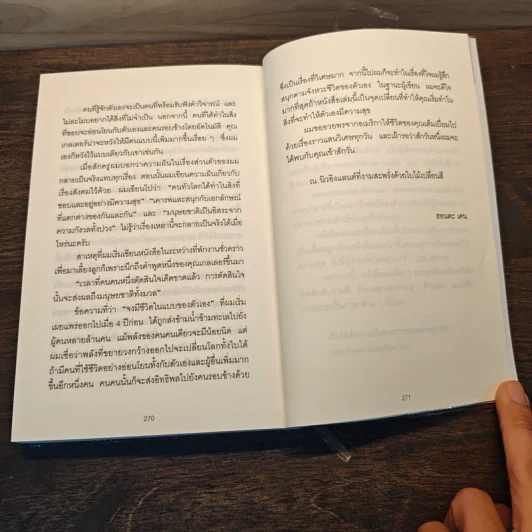 คนที่รู้จักตัวเองจะเป็นคนที่พร้อมรับฟังคำวิจารณ์ และ
ไม่ละโมบอยากได้สิ่งที่ไม่จำเป็น นอกจากนี้ คนที่ได้ทำในสิ่ง
ที่ชอบจะอ่อนโยนกับตัวเองและคนรอบข้างโดยอัตโนมัติ คุณ
เกตเตอร์น่าจะหวังให้มีคนแบบนี้เพิ่มมากขึ้นเรื่อย ๆ ซึ่งผม
เองก็หวังไว้แบบเดียวกับเขาเช่นกัน
เมื่อสักครู่ผมบอกว่าความฝันในเรื่องส่วนตัวของผม
กลายเป็นจริงแทบทุกเรื่อง ตอนนั้นผมเขียนความฝันเกี่ยวกับ
เรื่องสังคมไว้ด้วย ผมเขียนไปว่า "คนทั่วโลกได้ทำในสิ่งที่
ชอบและอยู่อย่างมีความสุข" "เคารพและสนุกกับเอกลักษณ์
ที่แตกต่างของกันและกัน" และ "มนุษยชาติเป็นอิสระจาก
ความกังวลทั้งปวง" ไม่รู้ว่าเรื่องเหล่านี้จะกลายเป็นจริงได้เมื่อ
ไหร่นะครับ
สาเหตุที่ผมเริ่มเขียนหนังสือในระหว่างที่พักงานชั่วคราว
เพื่อมาเลี้ยงลูกก็เพราะนึกถึงคำพูดหนึ่งของคุณเกลเลอร์ขึ้นมา
"เวลาที่คนคนหนึ่งตัดสินใจเด็ดขาดแล้ว การตัดสินใจ
นั้นจะส่งผลถึงมนุษยชาติทั้งมวล"
ข้อความที่ว่า "จงมีชีวิตในแบบของตัวเอง" ที่ผมเริ่ม
เผยแพร่ออกไปเมื่อ 4 ปีก่อน ได้ถูกส่งข้ามน้ำข้ามทะเลไปยัง
ผู้คนหลายล้านคน แม้พลังของคนคนเดียวจะมีน้อยนิด แต่
ผมเชื่อว่าพลังที่ขยายวงกว้างออกไปจะเปลี่ยนโลกทั้งใบได้
ถ้ามีคนที่ใช้ชีวิตอย่างอ่อนโยนทั้งกับตัวเองและผู้อื่นเพิ่มมาก
ขึ้นอีกหนึ่งคน คนคนนั้นก็จะส่งอิทธิพลไปยังคนรอบข้างด้วย
270
ซึ่งเป็นเรื่องที่วิเศษมาก จากนี้ไปผมก็จะทำในเรื่องที่ใจผมรู้สึก
สนุกตามจังหวะชีวิตของตัวเอง ในฐานะผู้เขียน ผมจะดีใจ
มากที่สุดถ้าหนังสือเล่มนี้เป็นจุดเปลี่ยนที่ทำให้คุณเริ่มทำใน
สิ่งที่จะทำให้ตัวเองมีความสุข
ผมขออวยพรจากอเมริกาให้ชีวิตของคุณเต็มเปี่ยมไป
ด้วยเรื่องราวแสนวิเศษทุกวัน และเฝ้ารอว่าสักวันหนึ่งผมจะ
ได้พบกับคุณเข้าสักวัน
ณ นิวอิงแลนด์ที่งามสะพรั่งด้วยใบไม้เปลี่ยนสี
ฮอนดะ เคน
271